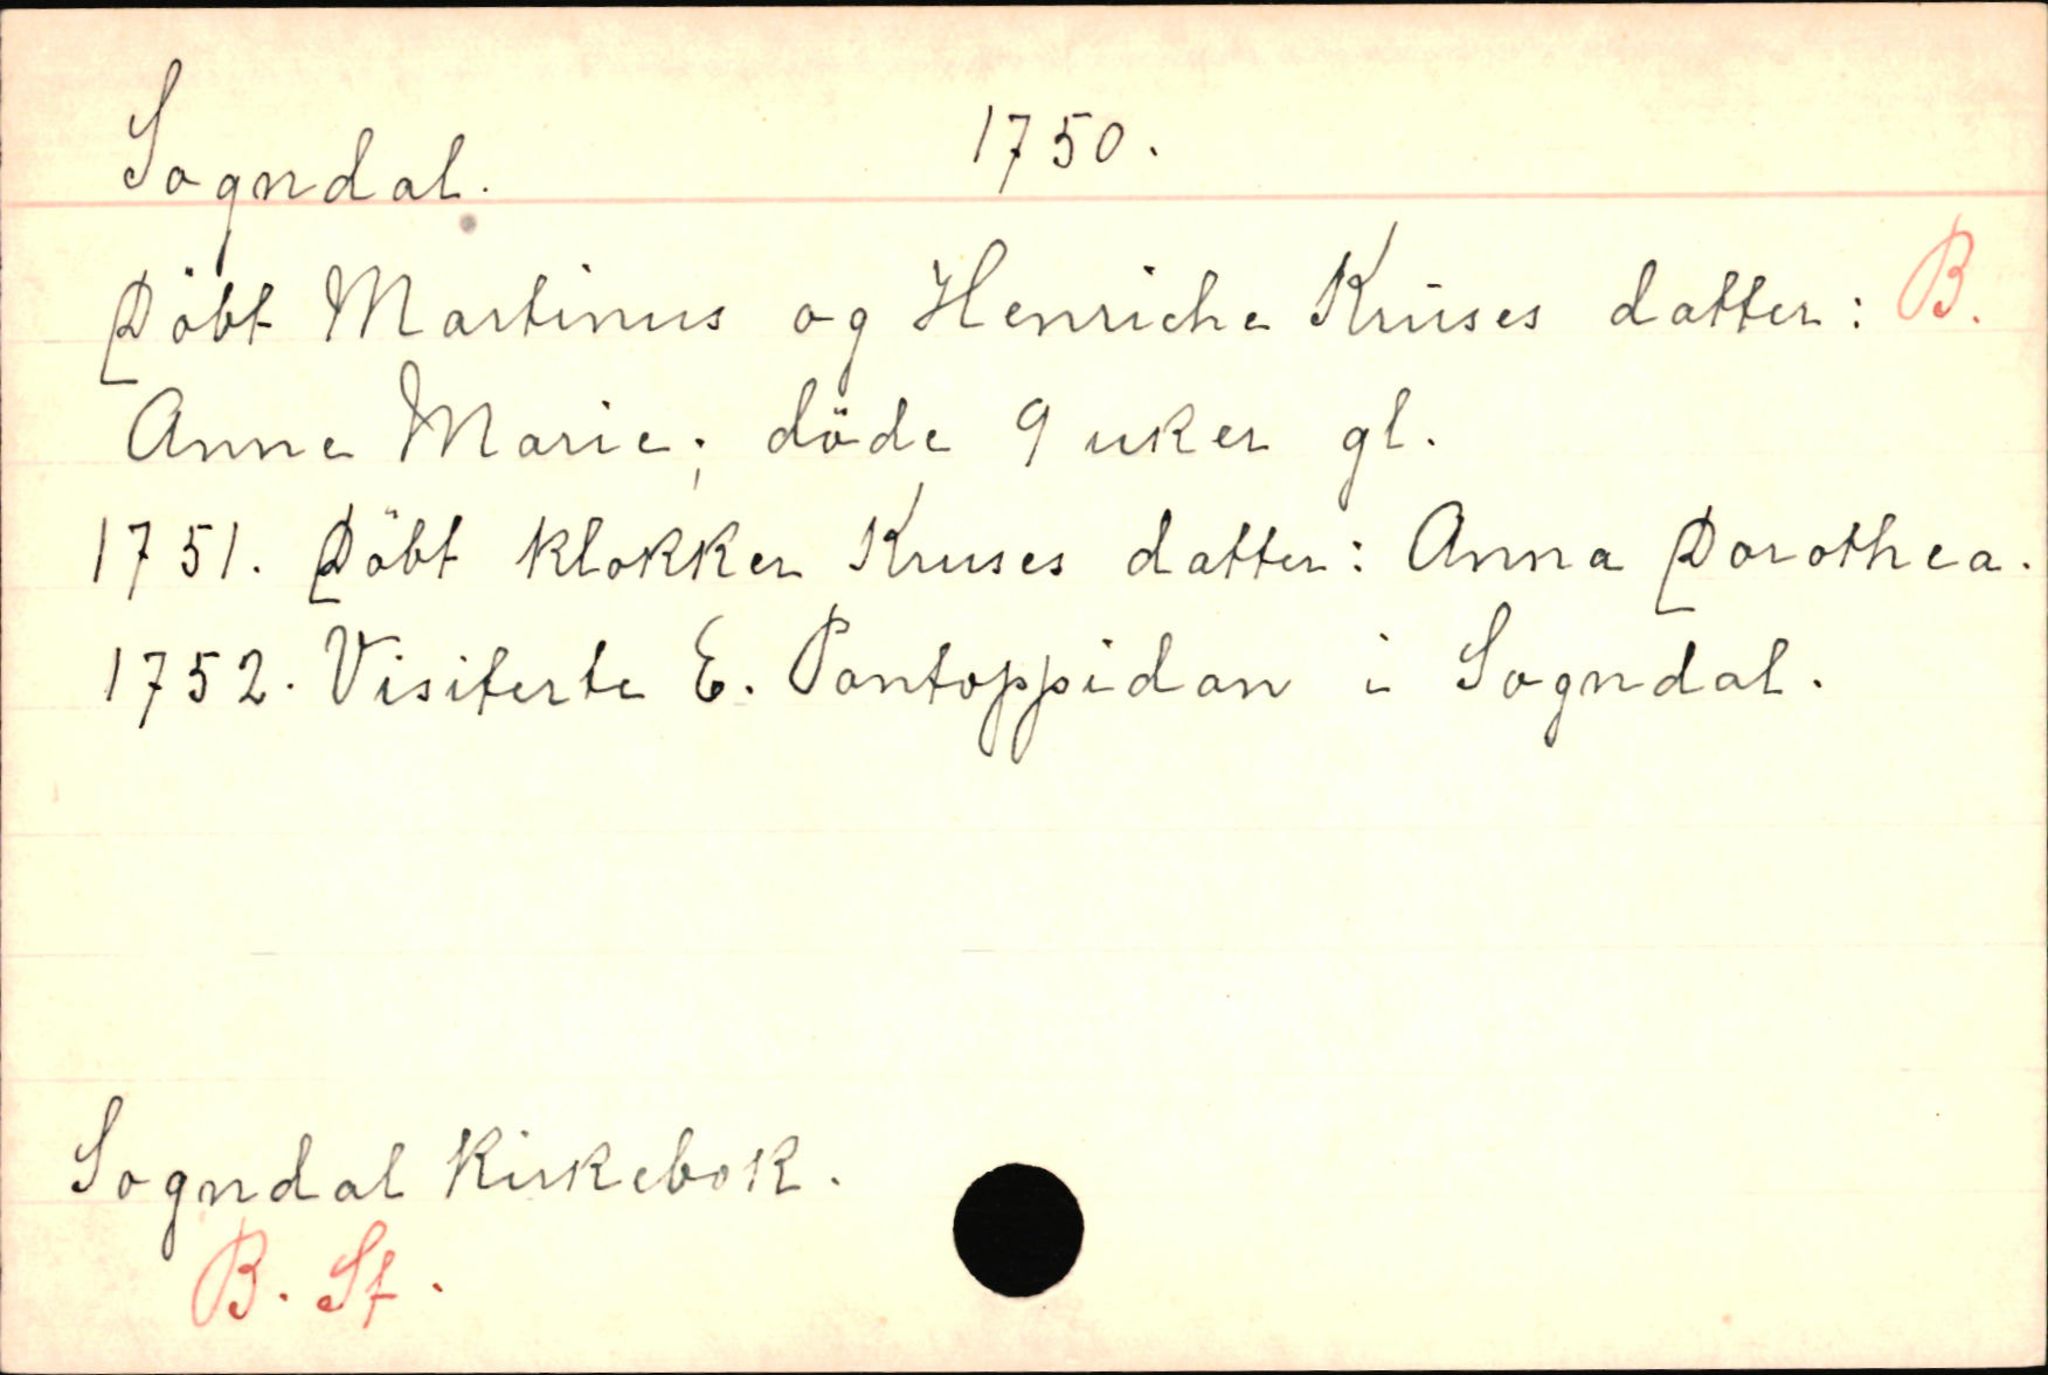 Sogndal. 1750.
Döbt Martinus og Henriche Krüses datter: B.
Anne Marie; döde 9 uker gl.
1751. Döbt klokker Kruses datter: Anna Dorothea.
1752. Visiterte E. Pontoppidan i Sogndal.
Sogndal Kirkebok.
B. St.